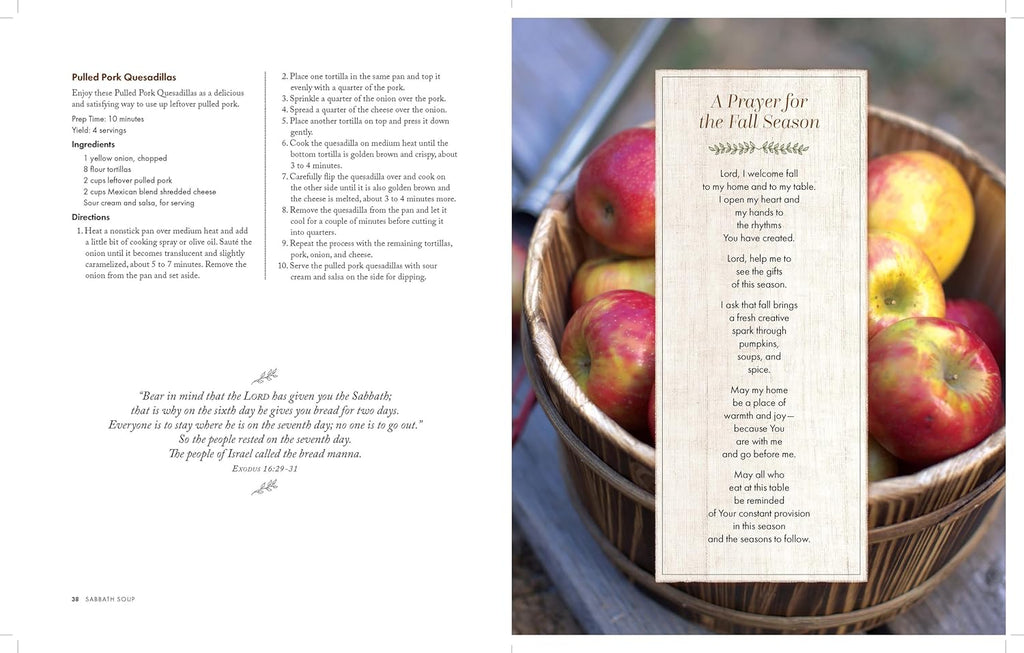 Pulled Pork Quesadillas
Enjoy these Pulled Pork Quesadillas as a delicious
and satisfying way to use up leftover pulled pork.
Prep Time: 10 minutes
Yield: 4 servings
Ingredients
1 yellow onion, chopped
8 flour tortillas
2 cups leftover pulled pork
2 cups Mexican blend shredded cheese
Sour cream and salsa, for serving
Directions
1. Heat a nonstick pan over medium heat and add
a little bit of cooking spray or olive oil. Sauté the
onion until it becomes translucent and slightly
caramelized, about 5 to 7 minutes. Remove the
onion from the pan and set aside.
2. Place one tortilla in the same pan and top it
evenly with a quarter of the pork.
3. Sprinkle a quarter of the onion over the pork.
4. Spread a quarter of the cheese over the onion.
5. Place another tortilla on top and press it down
gently.
6. Cook the quesadilla on medium heat until the
bottom tortilla is golden brown and crispy, about
3 to 4 minutes.
7. Carefully flip the quesadilla over and cook on
the other side until it is also golden brown and
the cheese is melted, about 3 to 4 minutes more.
8. Remove the quesadilla from the pan and let it
cool for a couple of minutes before cutting it
into quarters.
9. Repeat the process with the remaining tortillas,
pork, onion, and cheese.
10. Serve the pulled pork quesadillas with sour
cream and salsa on the side for dipping.
“Bear in mind that the LORD has given you the Sabbath;
that is why on the sixth day he gives you bread for two days.
Everyone is to stay where he is on the seventh day; no one is to go out.”
So the people rested on the seventh day.
The people of Israel called the bread manna.
EXODUS 16:29-31
38 SABBATH SOUP
A Prayer for
the Fall Season
Lord, I welcome fall
to my home and to my table.
I open my heart and
my hands to
the rhythms
You have created.
Lord, help me to
see the gifts
of this season.
I ask that fall brings
a fresh creative
spark through
pumpkins,
soups, and
spice.
May my home
be a place of
warmth and joy—
because You
are with me
and go before me.
May all who
eat at this table
be reminded
of Your constant provision
in this season
and the seasons to follow.